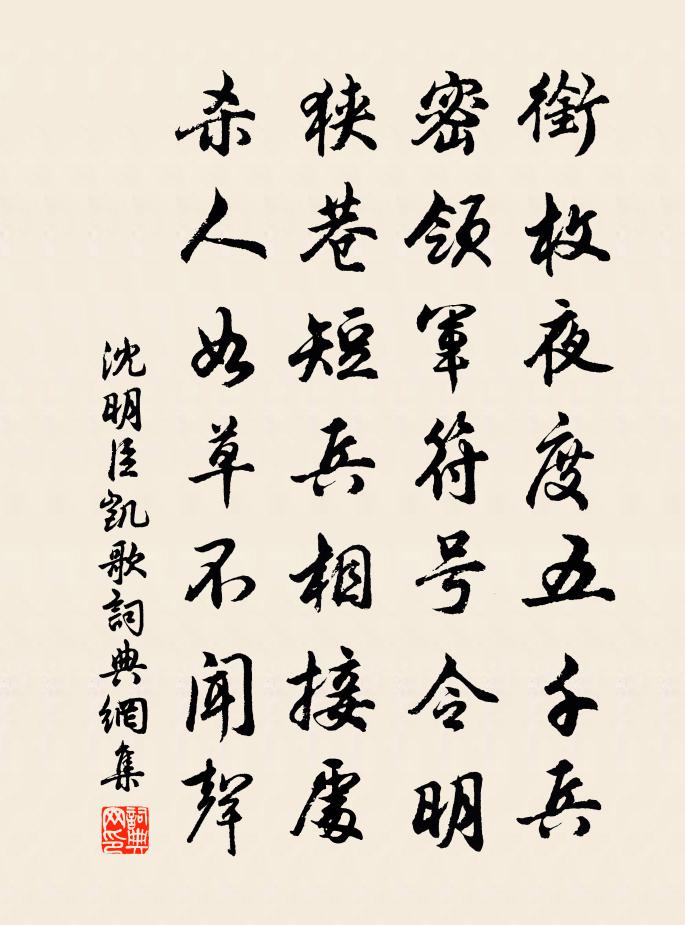 銜枚夜度五千兵
密領軍符号令明
狹巷短兵相接處
杀人如草不聞聲
沈明臣凱歌詞典網集
詞典网印